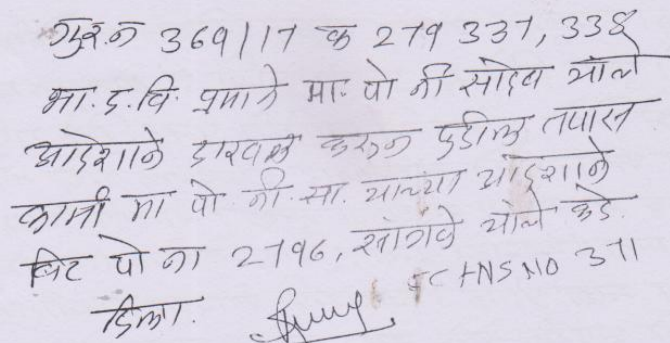 गु.र.नं 369/17 क 279 337, 338
भा. द. वि. प्रमाणे मा. पो नी साहेब यांचे
आदेशाने दाखल करुन पुढील तपास
कामी मा पो नी. सा. यांच्या आदेशाने
बिट पो ना 2796, यांचे कडे
दिला. NS NO 371